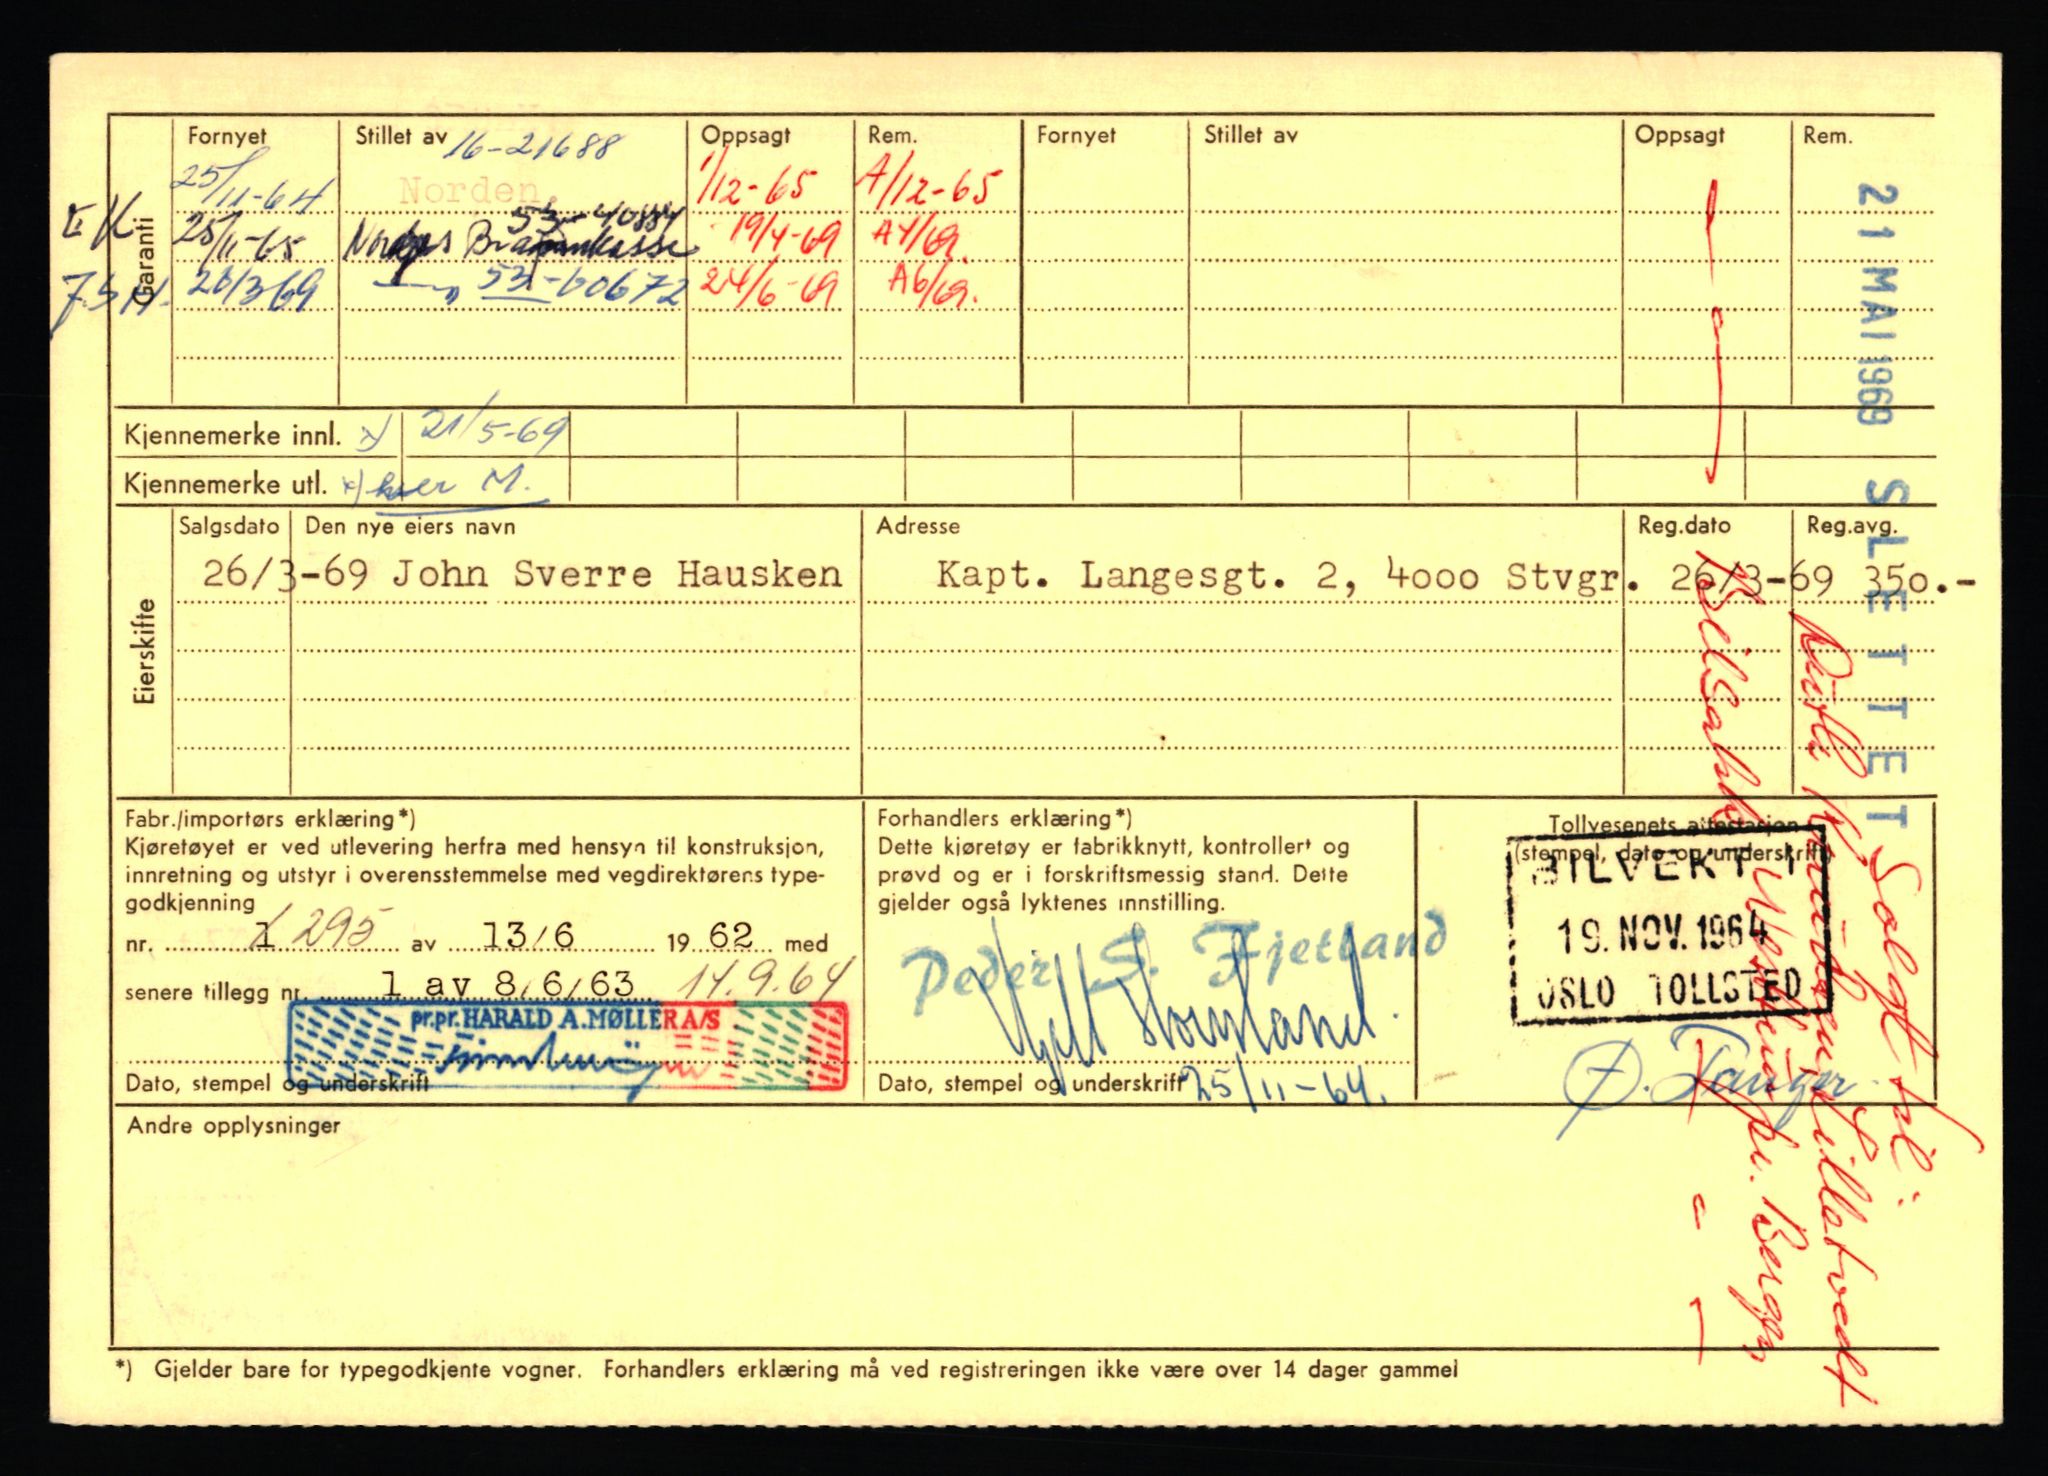 Fornyet Stillet av 16-21688 Oppsagt Rem. Fornyet Stillet av Oppsagt Rem.
25/11-64 Norden. 1/12-65 A/12-65
53-40884
EK 25/11-65 Norges Brannkasse 19/4-69 A4/69.
26/3 69 53-60672 24/6-69 A6/69.
Garanti
Kjennemerke innl. x) 21/5-69
Kjennemerke utl. x) hver M.
21 MAI 1969 SLETTET
Salgsdato Den nye eiers navn Adresse Reg.dato Reg.avg.
26/3-69 John Sverre Hausken Kapt. Langesgt. 2, 4000 Stvgr. 26/3-69 350.-
Eierskifte
Fabr./importørs erklæring*)
Kjøretøyet er ved utlevering herfra med hensyn til konstruksjon,
innretning og utstyr i overensstemmelse med vegdirektørens type-
godkjenning
nr. 1295 av 13/6 1962 med
senere tillegg nr. 1 av 8/6/63 14.9.64
pr.pr. HARALD A. MØLLER A/S
Dato, stempel og underskrift
Forhandlers erklæring*)
Dette kjøretøy er fabrikknytt, kontrollert og
prøvd og er i forskriftsmessig stand. Dette
gjelder også lyktenes innstilling.
Peder S. Fjetland
Dato, stempel og underskrift 25/11-64.
Tollvesenets attestasjon
(stempel, dato og underskrift)
BILVEKT 1
19. NOV. 1964
OSLO TOLLSTED
Solgt til:
Lillatvedt
Bergen
Andre opplysninger
*) Gjelder bare for typegodkjente vogner. Forhandlers erklæring må ved registreringen ikke være over 14 dager gammel